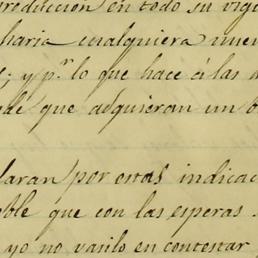 rediccion en todo su vigo
haria cualquiera nuev
; y p.r lo que hace á las
que adquieran un
laran por estas indicac
oble que con las esperas
yo no vacilo en contestar